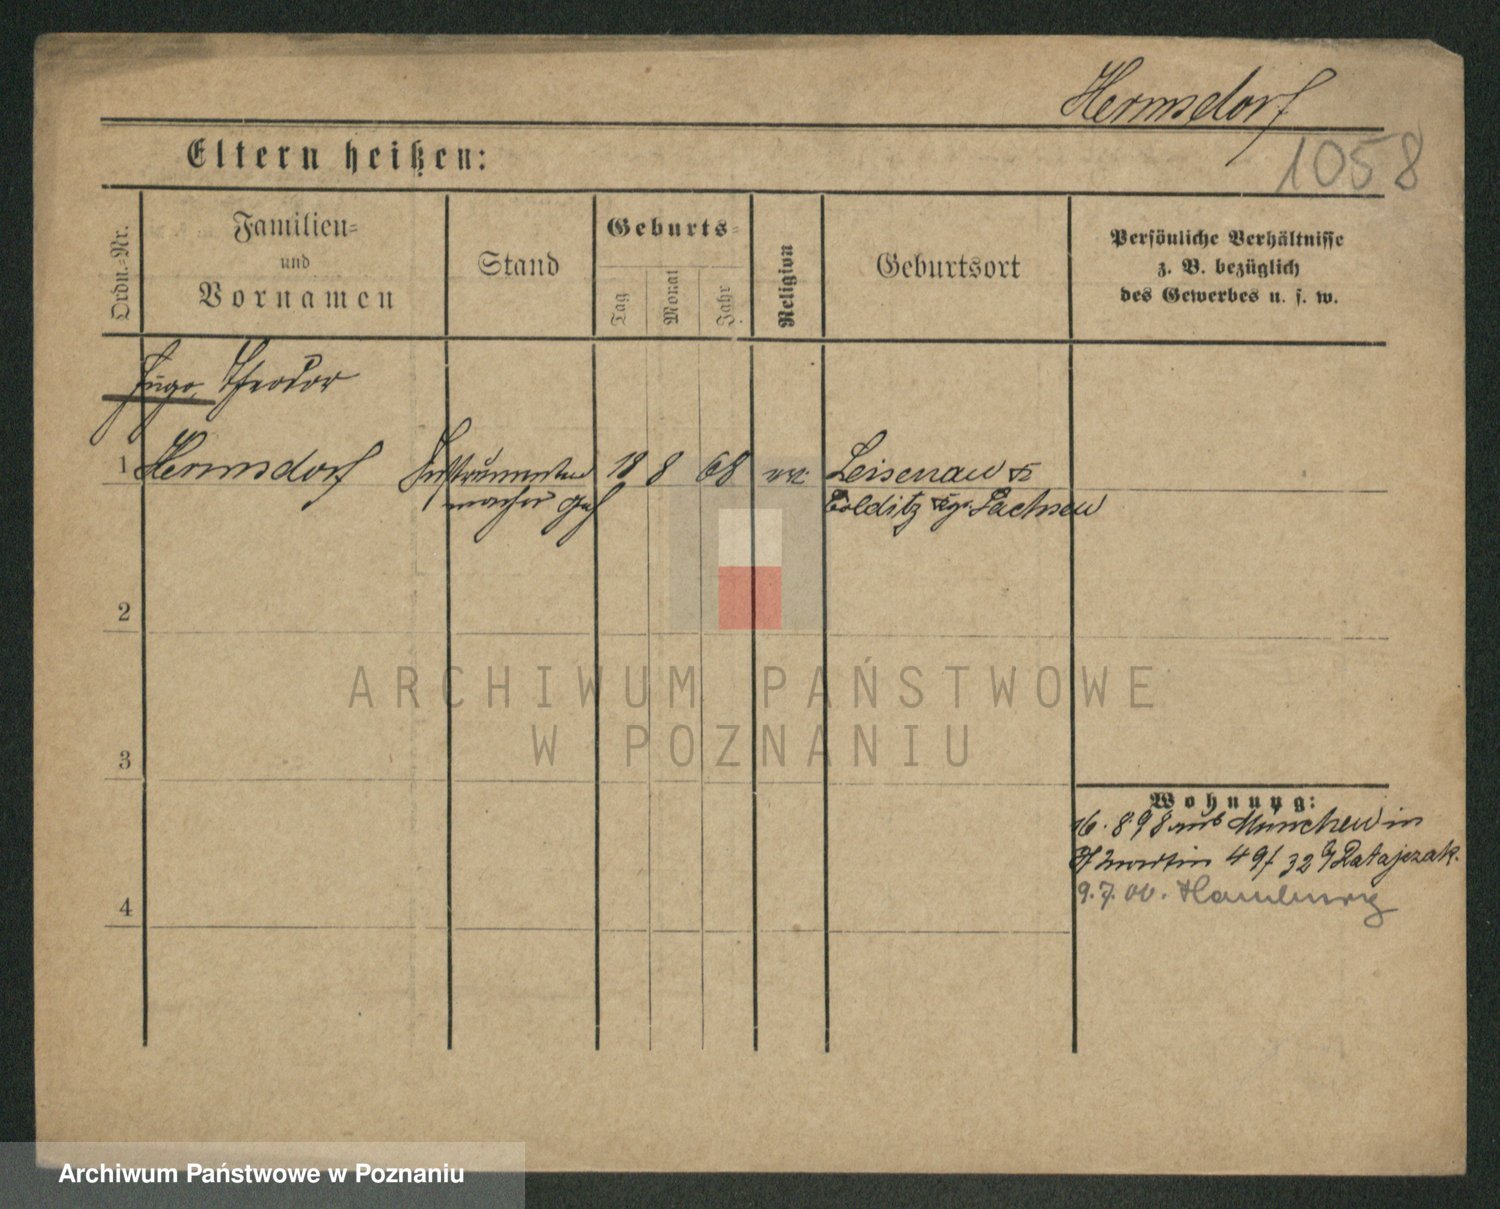 Hermsdorf
1058
Eltern heißen:
Ordn.-Nr.
Familien-
und
Vornamen
Stand
Geburts-
Tag
Monat
Jahr
Religion
Geburtsort
Persönliche Verhältnisse
z. B. bezüglich
des Gewerbes u. s. w.
Hugo Theodor
1 Hermsdorf Instrumenten 18 8 68 Leisenau
macher Geh Colditz Kgr. Sachsen
2
3
4
Wohnung:
16. 8. 98 aus München in
St Martin 49/ 32 Ratajczak.
9. 7. 00. Hamburg
ARCHIWUM PAŃSTWOWE
W POZNANIU
Archiwum Państwowe w Poznaniu